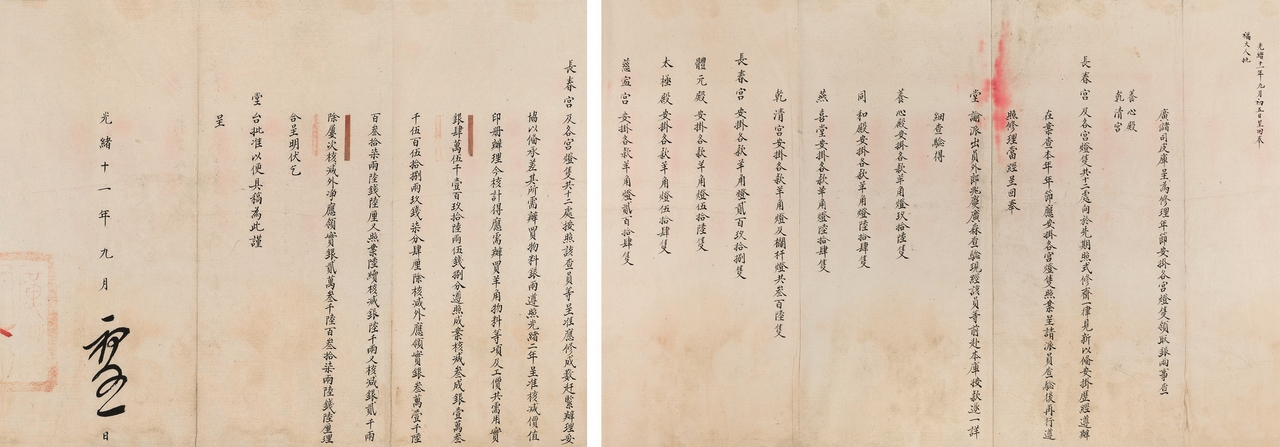 光緒十一年九月初五日呈回奉
福大人批
廣儲司皮庫呈為修理年節安掛各宮燈隻領取銀兩事查
養心殿
乾清宮
長春宮及各宮燈隻共十二處向於先期照式修齊一律見新以備安掛歷經遵辦
在案查本年年節應安掛各宮燈隻照案呈請派員查驗後再行遵
照修理當經呈回奉
堂諭派出員外郎兆慶廣森查驗現經該員等前赴本庫按款逐一詳
細查驗得
養心殿安掛各款羊角燈玖拾陸隻
同和殿安掛各款羊角燈陸拾肆隻
燕喜堂安掛各款羊角燈陸拾肆隻
乾清宮安掛各款羊角燈及欄杆燈共叁百陸隻
長春宮安掛各款羊角燈貳百玖拾捌隻
體元殿安掛各款羊角燈伍拾陸隻
太極殿安掛各款羊角燈伍拾肆隻
慈寍宮安掛各款羊角燈貳百拾肆隻
長春宮及各宮燈隻共十二處按照該查員等呈准應修成數趕緊辦理安
協以備承差其所需辦買物料銀兩遵照光緒二年呈准核減價值
印册辦理今核計得應需辦買羊角物料等項及工價共需用實
銀肆萬伍千壹百玖拾陸兩伍錢捌分遵照成案核減叁成銀壹萬叁
千伍百伍拾捌兩玖錢柒分肆厘除核減外應領實銀叁萬壹千陸
百叁拾柒兩陸錢陸厘又照案陸續核減銀陸千兩又核減銀貳千兩
除屢次核減外淨應領實銀貳萬叁千陸百叁拾柒兩陸錢陸厘理
合呈明伏乞
堂台批准以便具稿為此謹
呈
光緒十一年九月
日